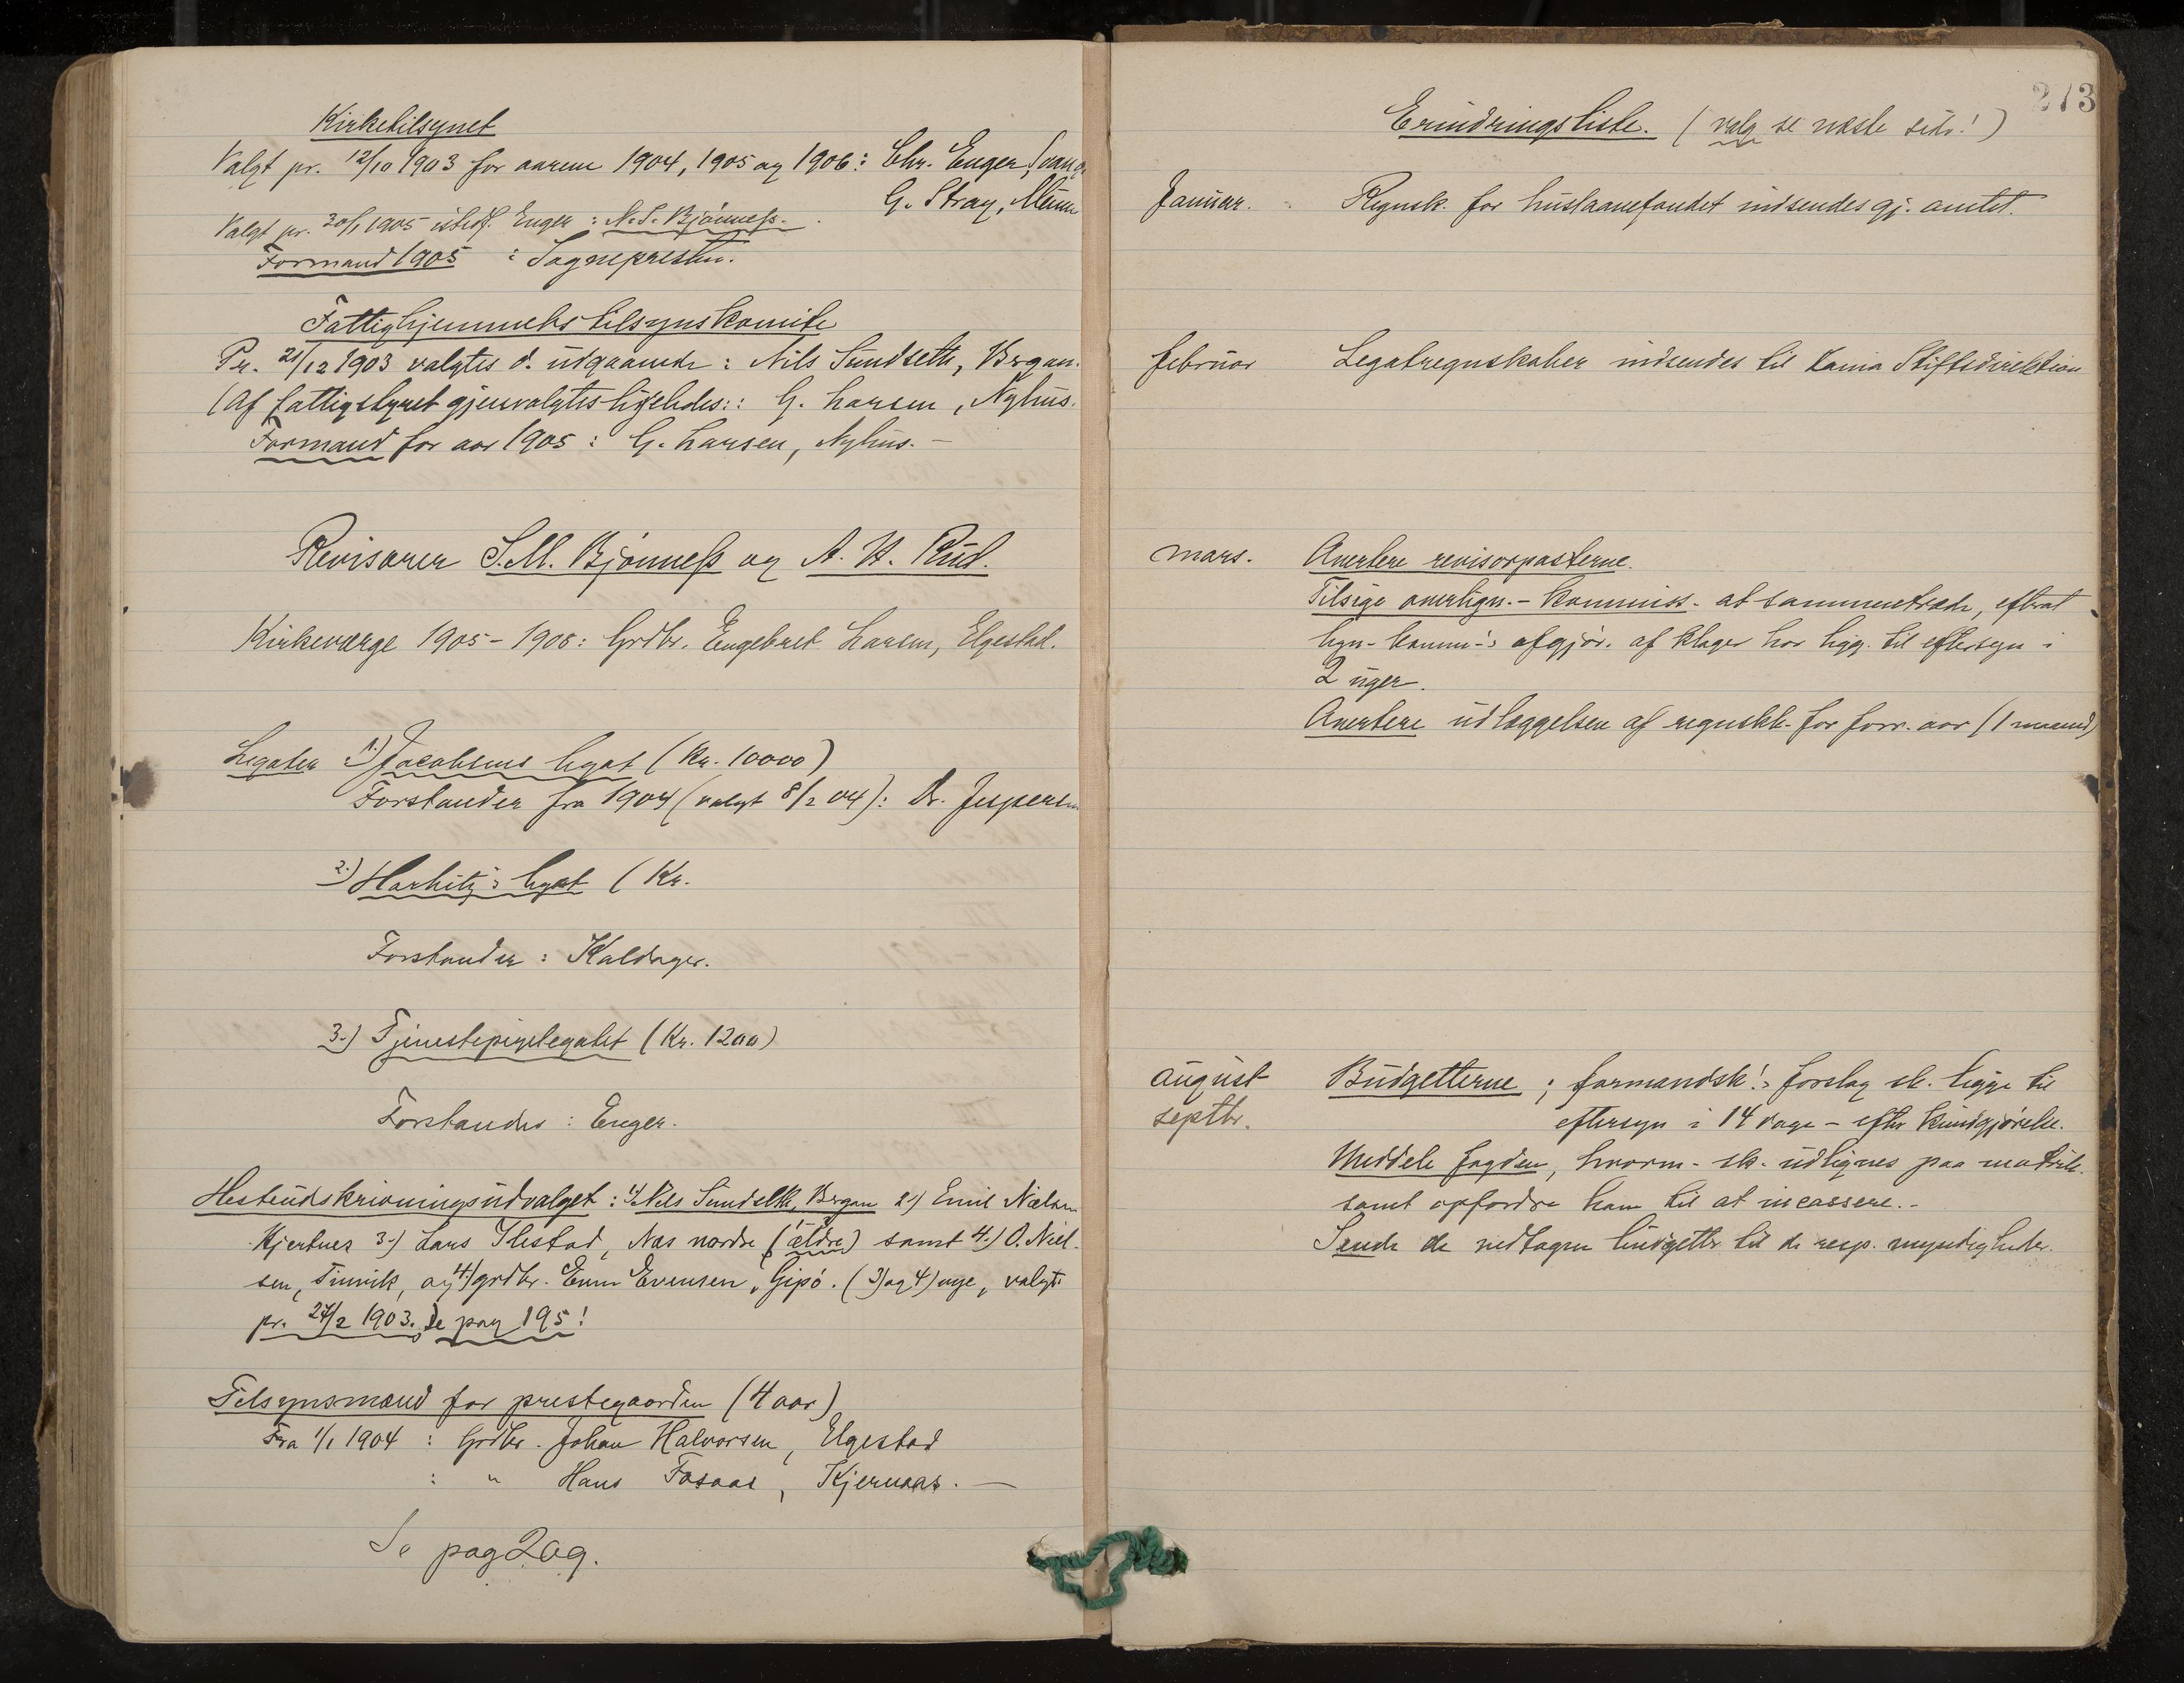 Kirketilsynet
Valgt pr. 12/10 1903 for aarene 1904, 1905 og 1906: Chr. Enger,
G. Stray,
Valgt pr. 30/1 1905 istedf. Enger: N. S. Bjønness.
Formand 1905 : Sognepresten.
Fattighjemmets tilsynskomite
Pr. 21/12 1903 valgtes d. udgaaende: Nils Sundseth, Bergan.
(Af fattigstyret gjenvalgtes ligeledes: G. Larsen, Nyhus.
Formand for aar 1905: G. Larsen, Nyhus. –
Revisorer S. M. Bjønness og A. H. Rud.
Kirkeværge 1905-1908: Grdbr. Engebret Larsen, Elgestad.
Legater 1.) Jacobsens legat (Kr. 10000)
Forstander fra 1904 (valgt 8/2 04): Dr. Jespersen
2.) Harbitz's legat (Kr.
Forstander: Kaldager.
3.) Tjenestepigelegatet (Kr. 1200)
Forstander: Enger.
Hesteudskrivningsudvalget: 1) Nils Sundseth, Bergan 2) Emil Nielsen
Kjernes 3.) Lars Ilestad, Næs nordre (ældre) samt 4.) O. Niel-
sen, Finvik, og 4) grdbr. Even Evensen, Gipø. (3) og 4) nye, valgt
pr. 27/2 1903. Se pag 195!
Tilsynsmænd for prestegaarden (4 aar)
Fra 1/1 1904 : Grdbr. Johan Halvorsen, Elgestad
: " Hans Fosaas, Kjernaas. —
Se pag 209.
273
Erindringsliste. (valg se næste side!)
Januar. Regnsk. for huslaanefondet indsendes gj. amtet.
februar Legatregnskaber indsendes til Kania Stiftsdirektion
mars. Avertere revisorposterne.
Tilsige overlign.-kommiss. at sammentræde, efterat
lign-komm-'s afgjør. af klager har ligg. til eftersyn i
2 uger.
Avertere udlæggelsen af regnskb. for forr. aar (1 maaned)
august Budgetterne; formandsk!s forslag sk. ligge til
septbr. eftersyn i 14 dage – efter kundgjørelse.
Meddele fogden, hvorm. sk. udlignes paa matrik.
samt opfordre ham til at incassere. -
Sende de vedtagne budgetter til de resp. myndigheder.